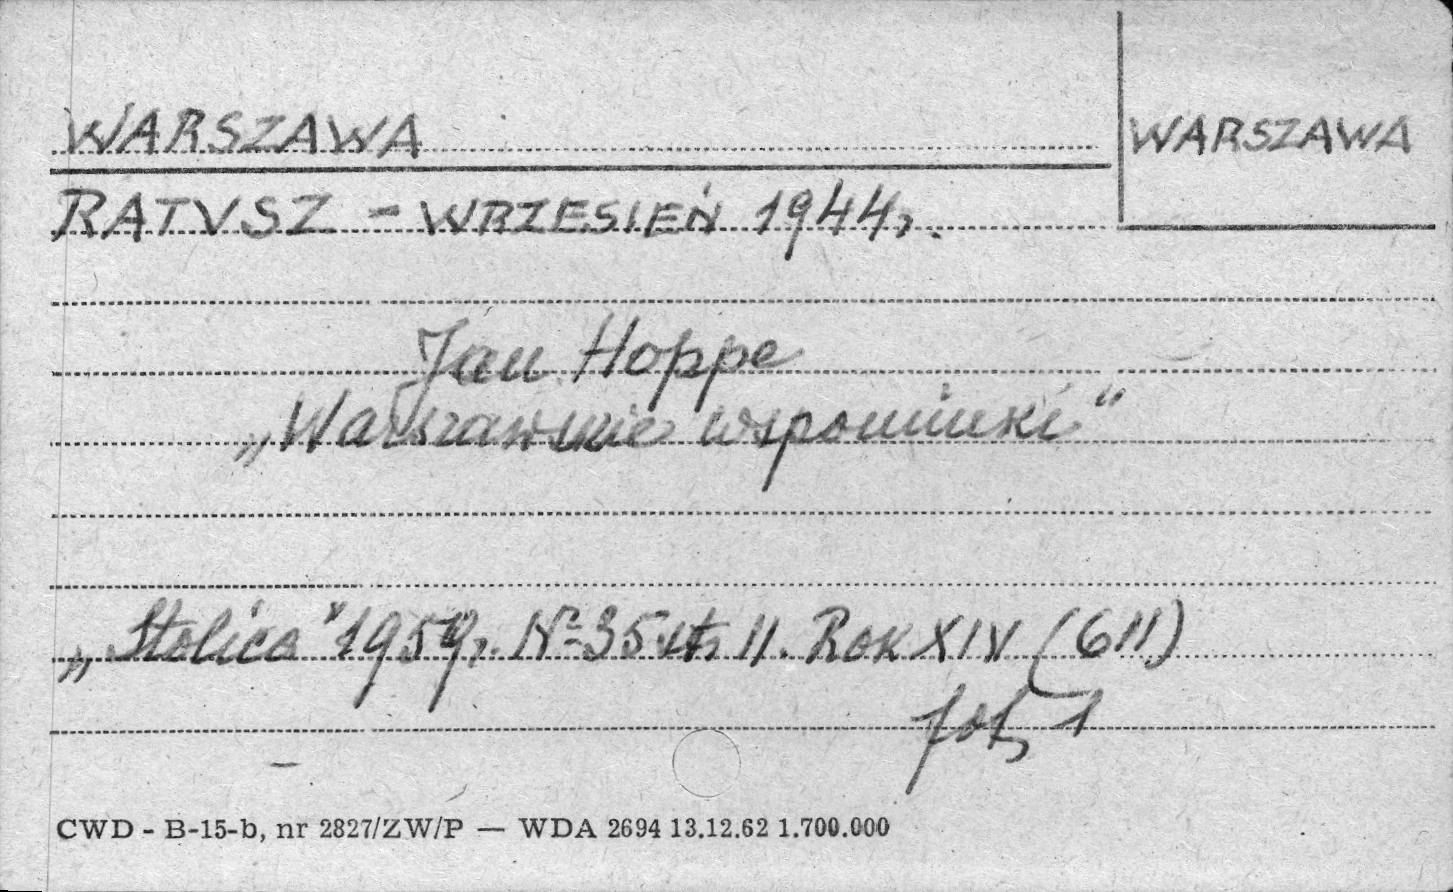 WARSZAWA
WARSZAWA
RATUSZ - WRZESIEŃ 1944r.
Jan Hoppe
„Warszawskie wspominki"
„Stolica" 1959r. Nº 35 str. 11. Rok XIV (611)
fot. 1
CWD - B-15-b, nr 2827/ZW/P — WDA 2694 13.12.62 1.700.000